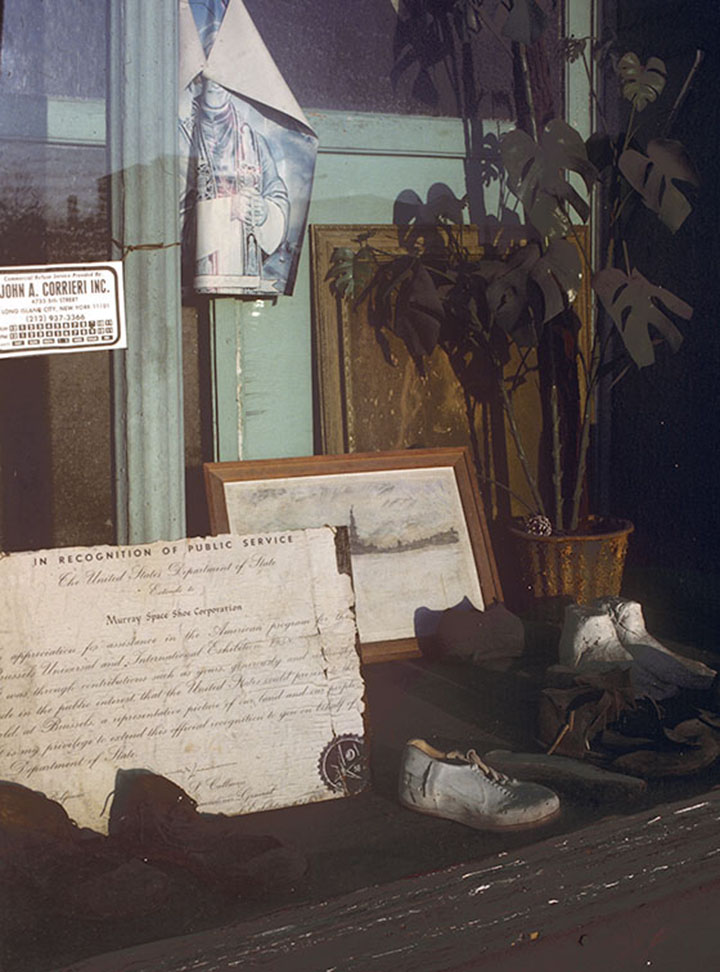 Commercial Refuse Service Provided By
JOHN A. CORRIERI INC.
4735 5th STREET
LONG ISLAND CITY, NEW YORK 11101
(212) 937-3366
IN RECOGNITION OF PUBLIC SERVICE
The United States Department of State
Extends to
Murray Space Shoe Corporation
appreciation for assistance in the American program for the
Brussels Universal and International Exhibition
was through contributions such as yours, generously and
made in the public interest that the United States could present
held at Brussels, a representative picture of our land and our people
is my privilege to extend this official recognition to you on behalf of
Department of State.